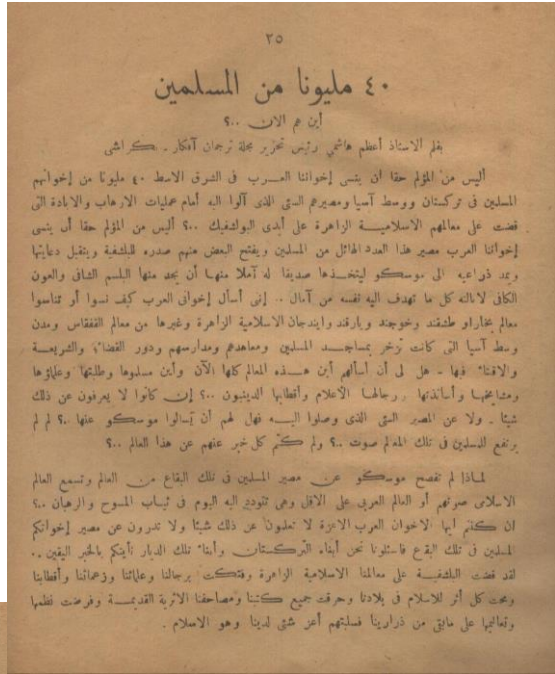 ٣٥
٤٠ مليونا من المسلمين
أين هم الان ..؟
بقلم الاستاذ أعظم هاشمي رئيس تحرير مجلة ترجمان أفكار . كراشى
أليس من المؤلم حقا ان ينسى إخواننا العرب فى الشرق الاوسط ٤٠ مليونا من إخوانهم
المسلمين فى تركستان ووسط آسيا ومصيرهم السئى الذى آلوا اليه أمام عمليات الارهاب والابادة التى
قضت على معالمهم الاسلامية الزاهرة على أيدى البولشفيك ..؟ أليس من المؤلم حقا أن ينسى
إخواننا العرب مصير هذا العدد الهائل من المسلمين ويفتح البعض منهم صدره للبلشفية ويتقبل دعايتها
ويمد ذراعيه الى موسكو ليتخذها صديقا له آملا منها أن يجد منها البلسم الشافى والعون
الكافى لانالته كل ما تهدف اليه نفسه من آمال .. إنى أسأل إخوانى العرب كيف نسوا أو تناسوا
معالم بخارا و طشقند وخوجند ويارقند وانديجان الاسلامية الزاهرة وغيرها من معالم القفقاس ومدن
وسط آسيا التى كانت تزخر بمساجد المسلمين ومعاهدهم ومدارسهم ودور القضاء والشريعة
والافتاء فيها - هل لى أن أسألهم أين هذه المعالم كلها الآن وأين مسلموها وطلبتها وعلماؤها
ومشايخها وأساتذتها ورجالها الاعلام وأقطابها الدينيون ..؟ إن كانوا لا يعرفون عن ذلك
شيئا . ولا عن المصير السئى الذى وصلوا اليه فهل لهم أن يسألوا موسكو عنها ..؟ لم لم
يرتفع للمسلمين فى تلك المعالم صوت ..؟ ولم كتم كل خبر عنهم عن هذا العالم ..؟
لماذا لم تفصح موسكو عن مصير المسلمين فى تلك البقاع من العالم وتسمع العالم
الاسلامى صوتهم أو العالم العربى على الاقل وهى تتودد اليه اليوم فى ثياب المسوح والرهبان ..؟
ان كنتم ايها الاخوان العرب الاعزة لا تعلمون عن ذلك شيئا ولا تدرون عن مصير إخوانكم
المسلمين فى تلك البقع فاسئلونا نحن أبناء التركستان وأبناء تلك الديار نأتيكم بالخبر اليقين ..
لقد قضت البلشفية على معالمنا الاسلامية الزاهرة وفتكت برجالنا وعلمائنا وزعمائنا وأقطابنا
ومحت كل أثر للاسلام فى بلادنا وحرقت جميع كتبنا ومصاحفنا الاثرية القديمة وفرضت نظمها
وتعاليمها على مابقى من ذرارينا فسلبتهم أعز شئى لدينا وهو الاسلام .